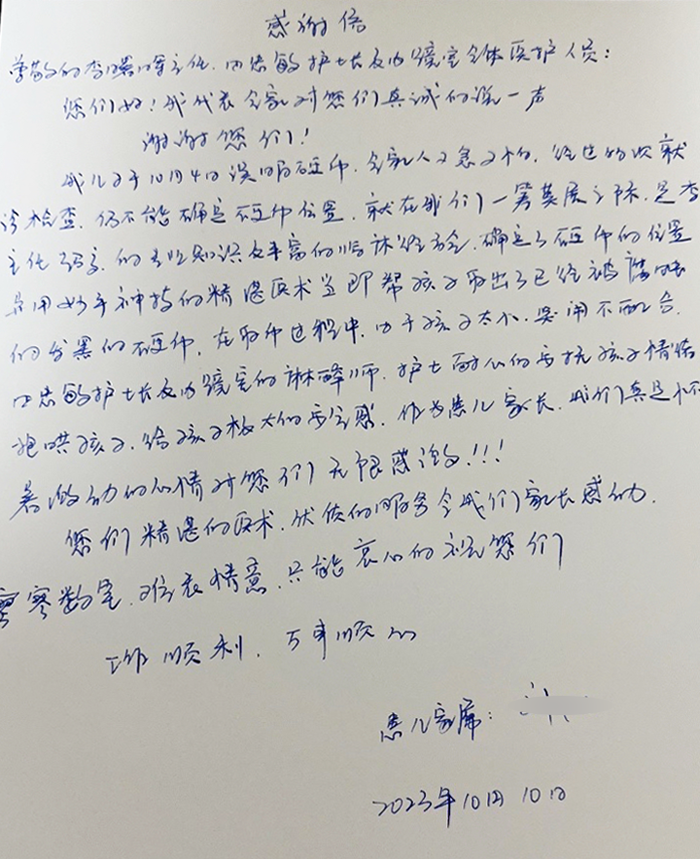 感谢信
尊敬的李曙晖主任、田忠敏护士长及内镜室全体医护人员:
您们好!我代表全家对您们真诚的说一声
谢谢您们!
我儿子于10月4日误吞硬币,全家人又急又怕,经过多次就
诊检查,仍不能确定硬币位置,就在我们一筹莫展之际,是李
主任 的专业知识及丰富的临床经验,确定了硬币的位置
是用妙手神技的精湛医术立即帮孩子取出了已经被腐蚀
的发黑的硬币,在取币过程中,由于孩子太小,哭闹不配合,
田忠敏护士长及内镜室的麻醉师、护士耐心的安抚孩子情绪
抱哄孩子,给孩子极大的安全感,作为患儿家长,我们真是怀
着激动的心情对您们无限感激!!!
您们精湛的医术,优质的服务令我们家长感动,
寥寥数笔,难表情意,只能衷心的祝您们
工作顺利,万事顺心
患儿家属:
2023年10月10日